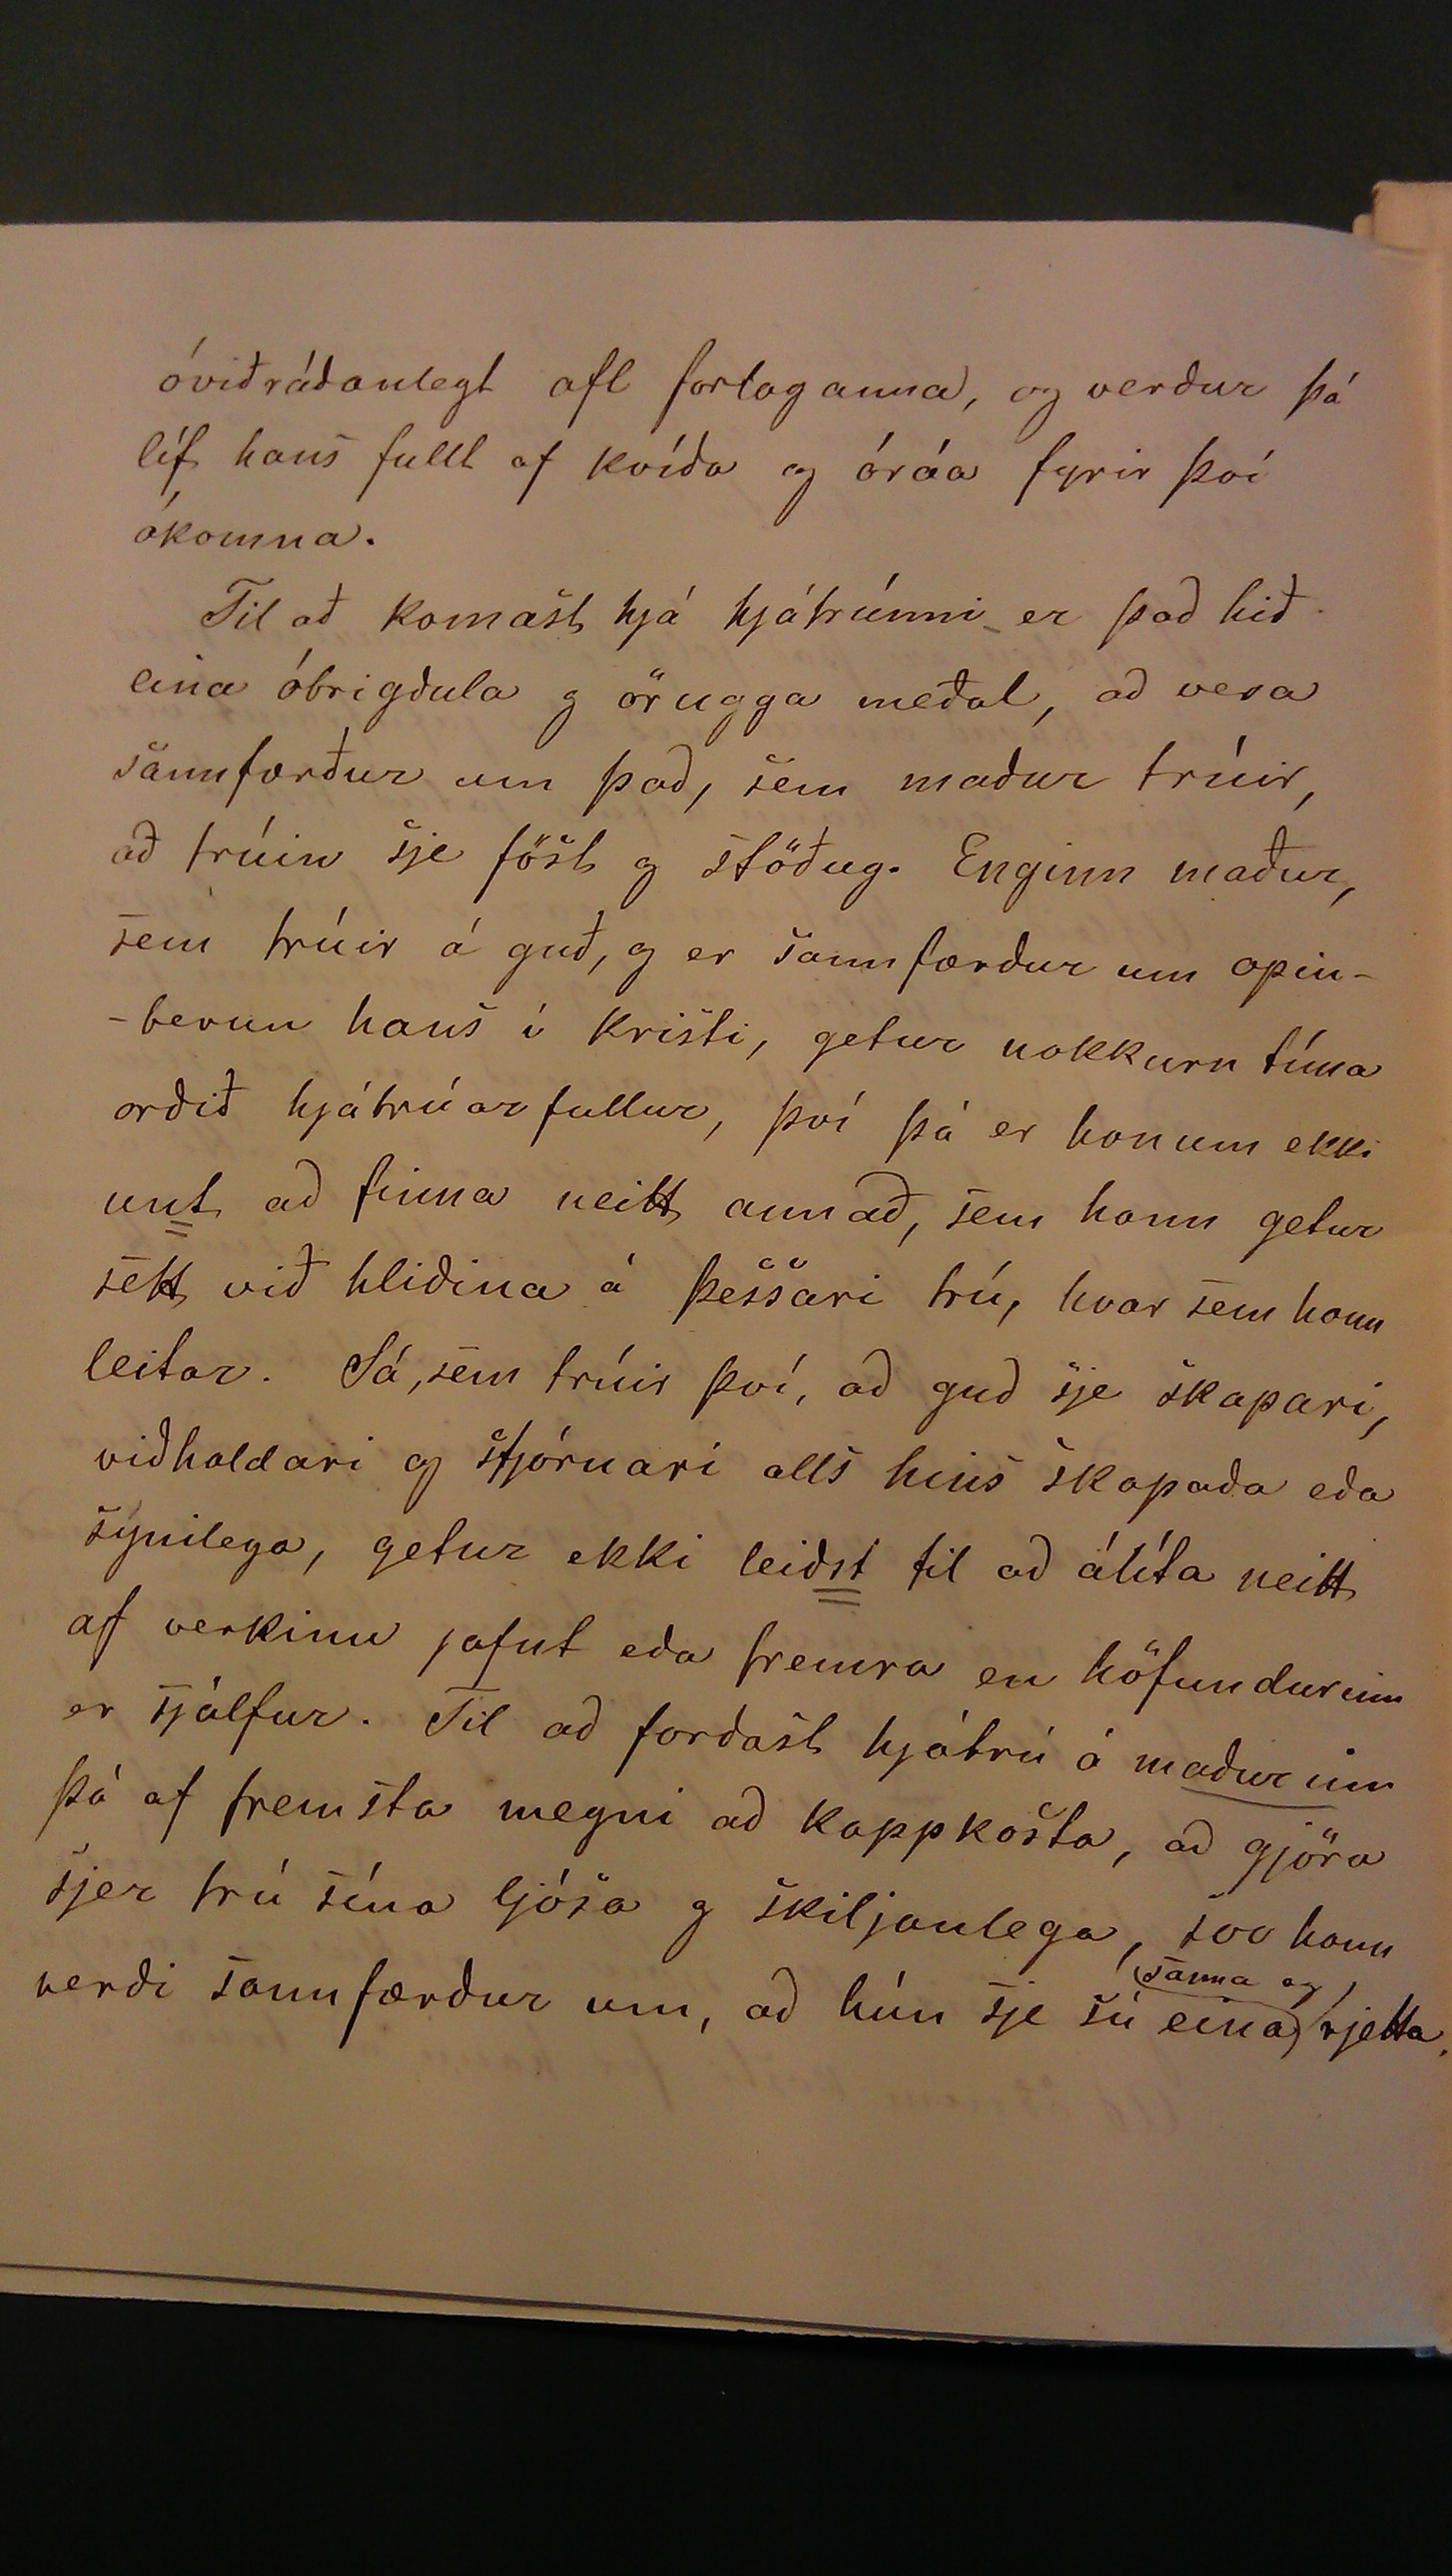 óviðráðanlegt afl forlaganna, og verður þá
líf hans fullt af kvíða og óráa fyrir því
ókomna.
Til að komast hjá hjátrúnni er það hið
eina óbrigðula og örugga meðal, að vera
sannfærður um það, sem maður trúir,
að trúin sje föst og stöðug. Enginn maður,
sem trúir á guð, og er sannfærður um opin-
-berun hans í Kristi, getur nokkurn tíma
orðið hjátrúarfullur, því þá er honum ekki
unt að finna neitt annað, sem hann getur
sett við hliðina á þessari trú, hvar sem hann
leitar. Sá, sem trúir því, að guð sje skapari,
viðhaldari og stjórnari alls hins skapaða eða
sýnilega, getur ekki leiðst til að álíta neitt
af verkinu jafnt eða fremra en höfundurinn
er sjálfur. Til að forðast hjátrú á maðurinn
þá af fremsta megni að kappkosta, að gjöra
sjer trú sína ljósa og skiljanlega, svo hann
verði sannfærður um, að hún sje sú eina sanna og rjetta.